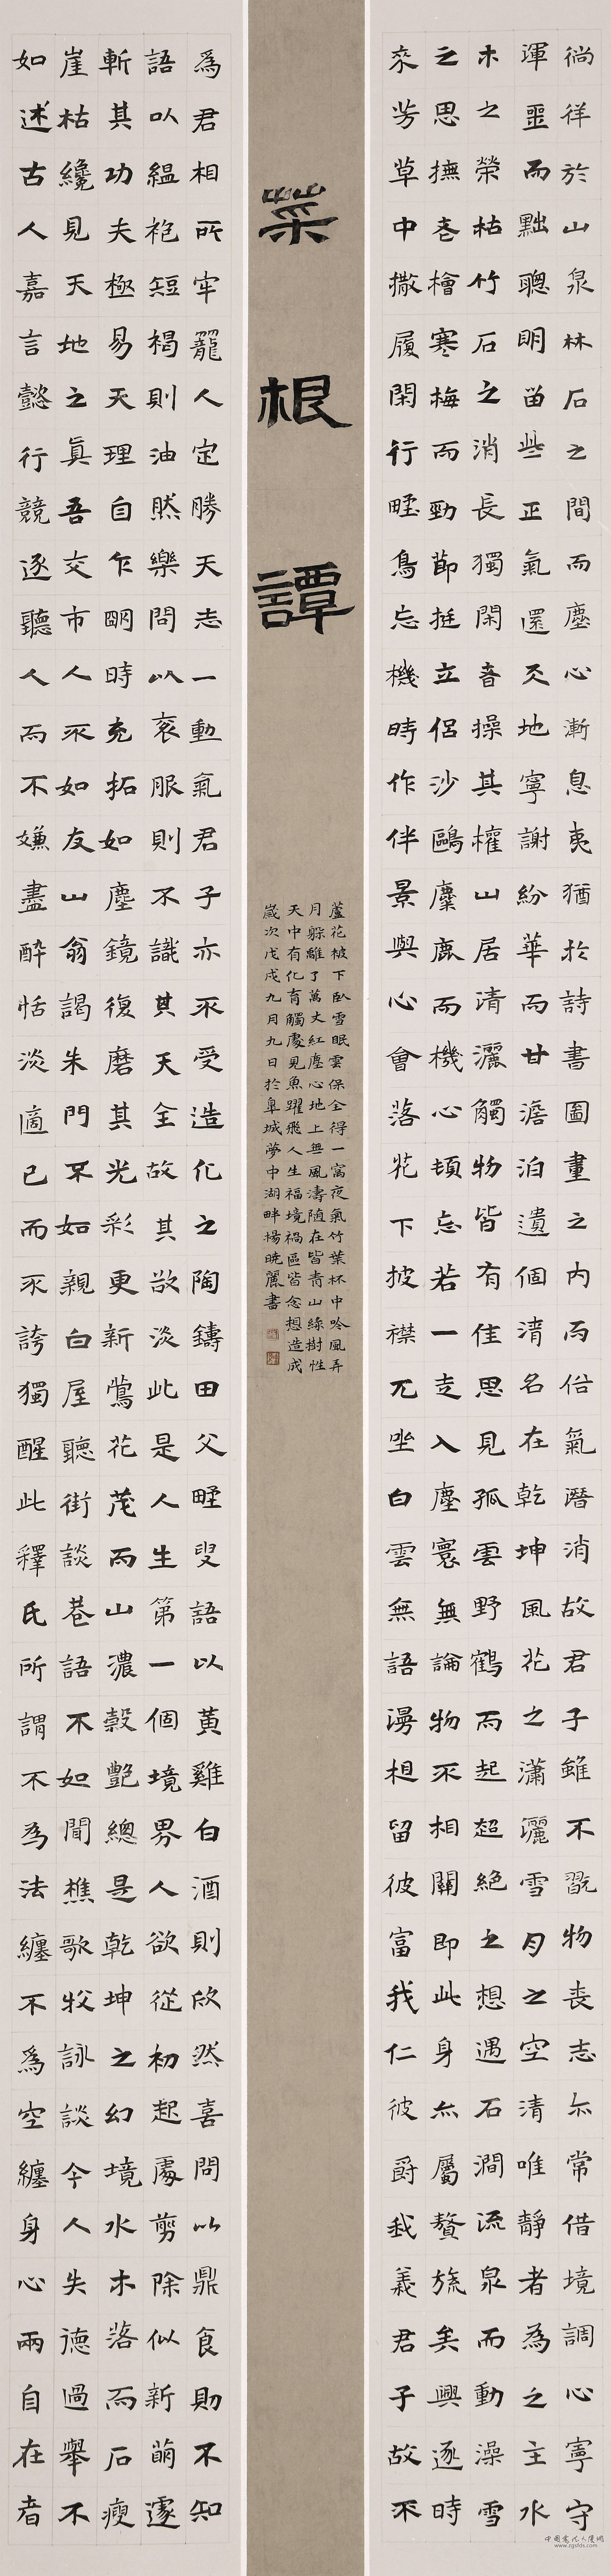 菜根譚
徜徉於山泉林石之間而塵心漸息夷猶於詩書圖畫之內而俗氣潛消故君子雖不翫物喪志亦常借境調心寧守
渾噩而黜聰明留些正氣還天地寧謝紛華而甘澹泊遺個清名在乾坤風花之瀟灑雪月之空清唯靜者為之主水
木之榮枯竹石之消長獨閑者操其權山居清灑觸物皆有佳思見孤雲野鶴而起超絕之想遇石澗流泉而動澡雪
之思撫老檜寒梅而勁節挺立侶沙鷗麋鹿而機心頓忘若一走入塵寰無論物不相關即此身亦屬贅旒矣興逐時
來芳草中撒履閑行野鳥忘機時作伴景與心會落花下披襟兀坐白雲無語漫相留彼富我仁彼爵我義君子故不
為君相所牢籠人定勝天志一動氣君子亦不受造化之陶鑄田父野叟語以黃雞白酒則欣然喜問以鼎食則不知
語以縕袍短褐則油然樂問以袞服則不識其天全故其欲淡此是人生第一個境界人欲從初起處剪除似新萌遽
斬其功夫極易天理自乍明時充拓如塵鏡復磨其光彩更新鶯花茂而山濃穀艷總是乾坤之幻境水木落而石瘦
崖枯纔見天地之真吾交市人不如友山翁謁朱門不如親白屋聽街談巷語不如聞樵歌牧詠談今人失德過舉不
如述古人嘉言懿行競逐聽人而不嫌盡醉恬淡適已而不誇獨醒此釋氏所謂不為法纏不為空纏身心兩自在者
蘆花被下臥雪眠雲保全得一窩夜氣竹葉杯中吟風弄
月躲離了萬丈紅塵心地上無風濤隨在皆青山綠樹性
天中有化育觸處見魚躍飛人生福境禍區皆念想造成
歲次戊戌九月九日於阜城夢中湖畔楊曉麗書